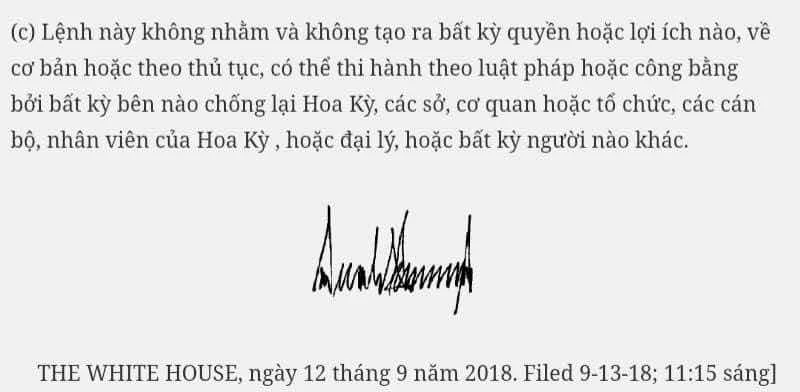 (c) Lệnh này không nhằm và không tạo ra bất kỳ quyền hoặc lợi ích nào, về
cơ bản hoặc theo thủ tục, có thể thi hành theo luật pháp hoặc công bằng
bởi bất kỳ bên nào chống lại Hoa Kỳ, các sở, cơ quan hoặc tổ chức, các cán
bộ, nhân viên của Hoa Kỳ , hoặc đại lý, hoặc bất kỳ người nào khác.
THE WHITE HOUSE, ngày 12 tháng 9 năm 2018. Filed 9-13-18; 11:15 sáng]